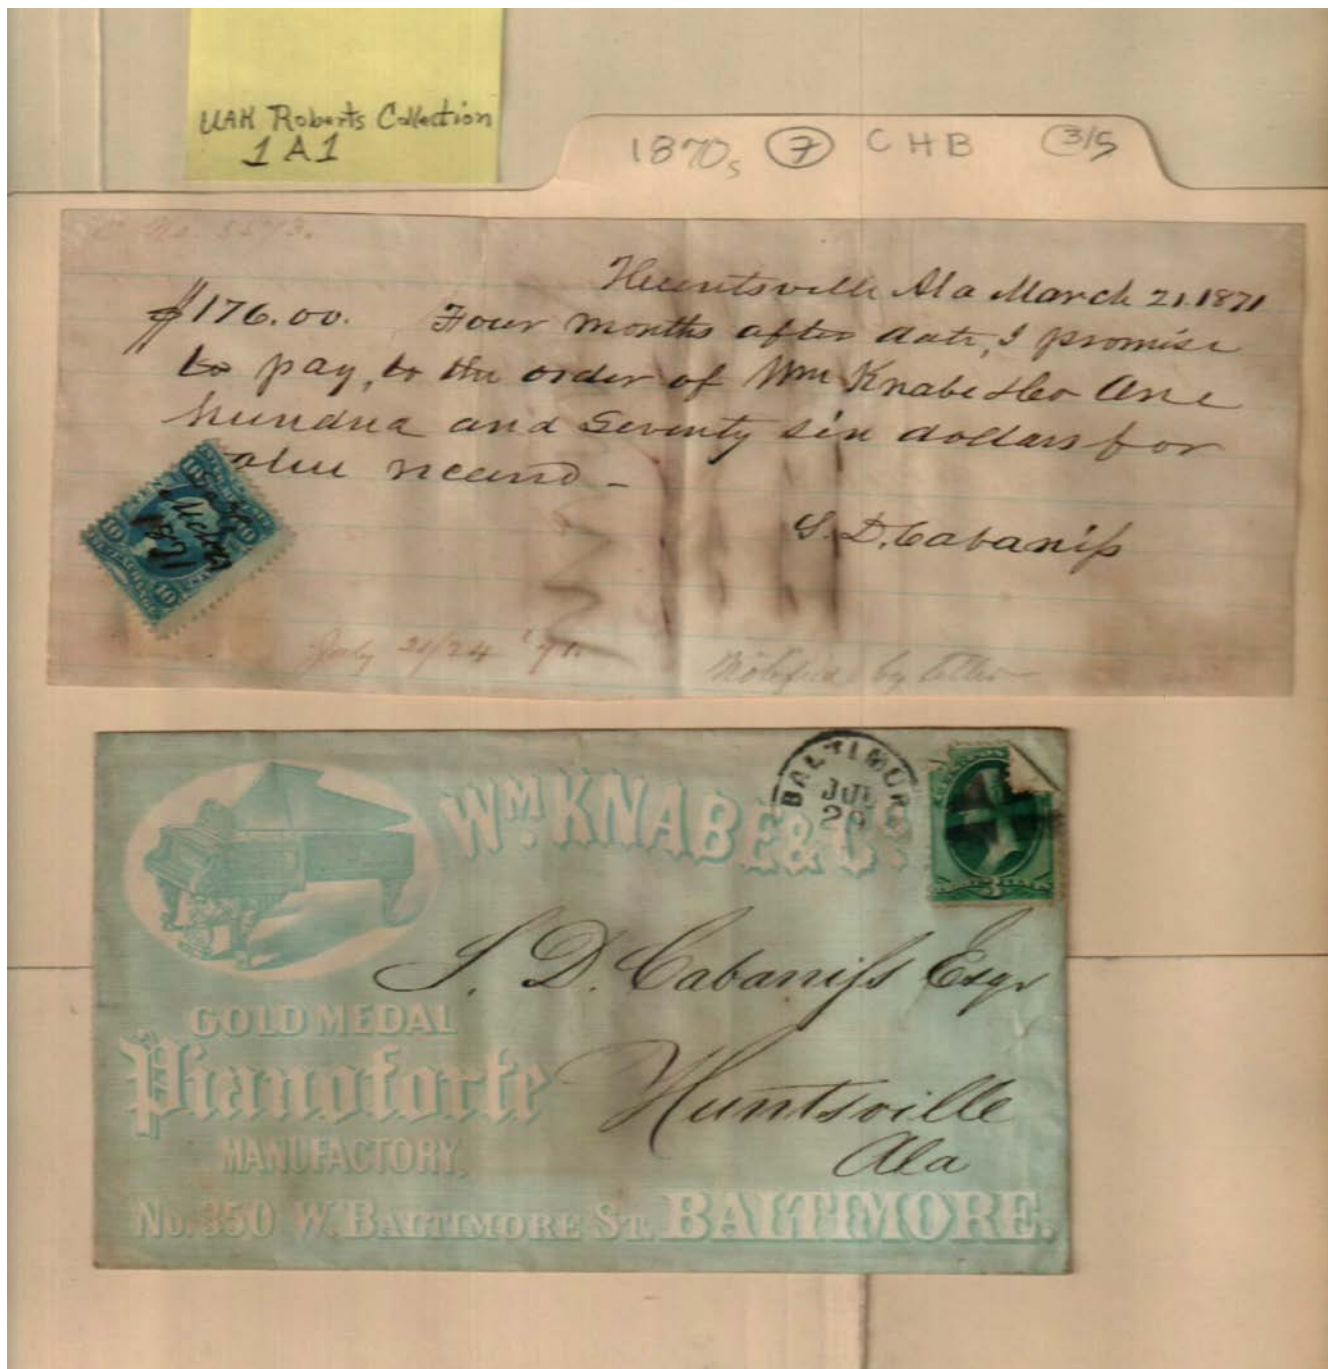 UAH Roberts Collection
1A1
1870s 7 CHB 3/5
No. 5573.
Huntsville Ala March 21. 1871
$176.00. Four months after date, I promise
to pay, to the order of Wm Knabe & Co One
hundred and Seventy six dollars for
value received -
S. D. Cabaniss
10 10
10 10
1871
July 21/24 '71.
Notified by letter
BALTIMORE
JUL
20
3
WM. KNABE & CO.
S. D. Cabaniss Esqr
GOLD MEDAL
Pianoforte
Huntsville
MANUFACTORY,
Ala
No. 350 W. BALTIMORE ST. BALTIMORE.